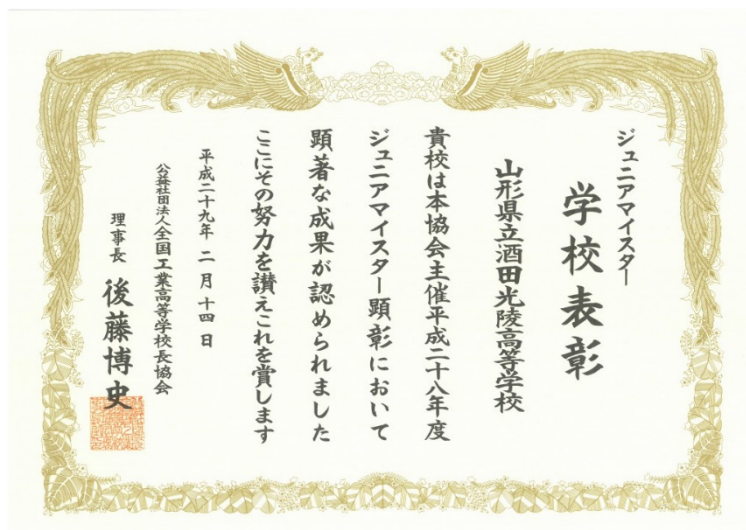 ジュニアマイスター
学校表彰
山形県立酒田光陵高等学校
貴校は本協会主催平成二十八年度
ジュニアマイスター顕彰において
顕著な成果が認められました
ここにその努力を讃えこれを賞します
平成二十九年 二月 十四日
公益社団法人全国工業高等学校長協会
理事長 後藤博史